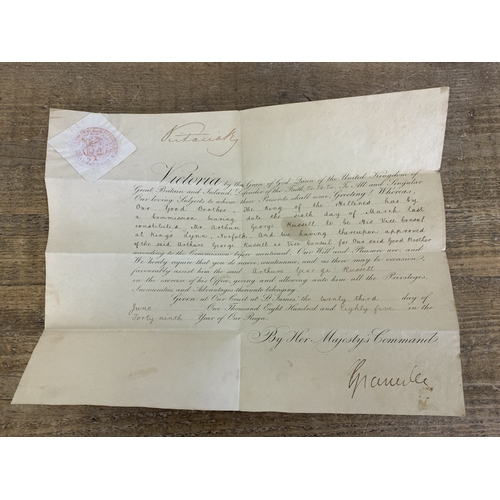 Victoria R
Victoria by the Grace of God, Queen of the United Kingdom of
Great Britain and Ireland, Defender of the Faith, &c. &c. &c. To All and Singular
Our loving Subjects to whom these Presents shall come, Greeting! Whereas,
Our Good Brother, The King of the Netherlands has by
a Commission bearing date the sixth day of March last
constituted Mr. Arthur George Russell to be His Vice Consul
at Kings Lynn, Norfolk. And We having thereupon approved
of the said Arthur George Russell as Vice Consul for Our said Good Brother
according to the Commission before mentioned, Our Will and Pleasure are, and
We hereby require that you do receive, countenance, and as there may be occasion,
favorably assist him the said Arthur George Russell
in the exercise of his Office, giving and allowing unto him all the Privileges,
Immunities and Advantages thereunto belonging.
Given at Our Court at St James's, the twenty third day of
June One Thousand Eight Hundred and eighty five in the
Forty-ninth Year of Our Reign.
By Her Majesty's Command
Granville